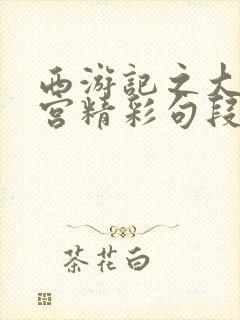 西游记之大
宫精彩句段
茶花白